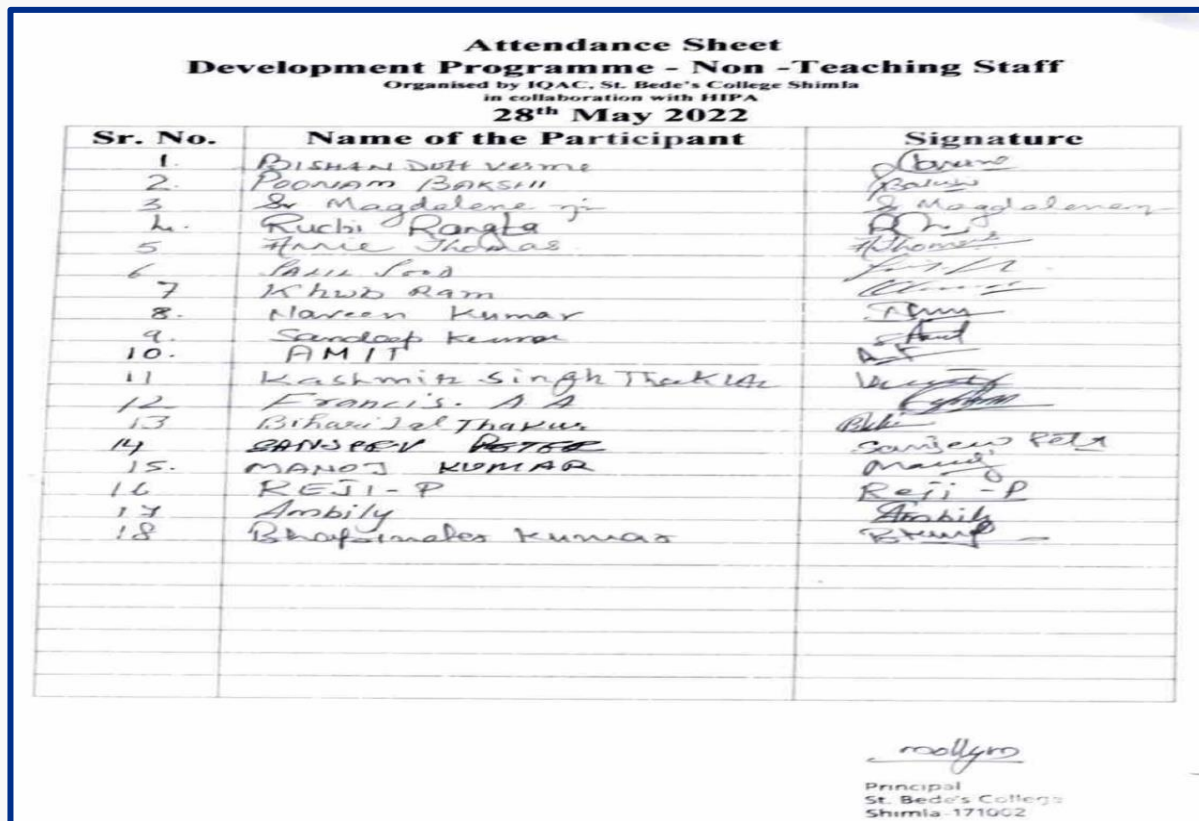 Attendance Sheet
Development Programme - Non -Teaching Staff
Organised by IQAC, St. Bede's College Shimla
in collaboration with HIPA
28th May 2022
Sr. No. Name of the Participant Signature
1. BISHAN Dutt Verma
2. POONAM BAKSHI
3 Sr Magdalene ji Sr Magdalene
4. Ruchi Rangta
5 Annie Thomas AThomas
6 Sood
7 Khub Ram
8. Naveen Kumar
9. Sandeep Kumar
10. AMIT
11 Kashmir Singh Thakur
12 Francis. A A
13 Bihari Lal Thakur
14 SANJEEV PETER Sanjeev Petr
15. MANOJ KUMAR Manoj
16 REJI-P Reji -P
17 Ambily Ambily
18 Kumar
mollyro
Principal
St. Bede's College
Shimla-171002